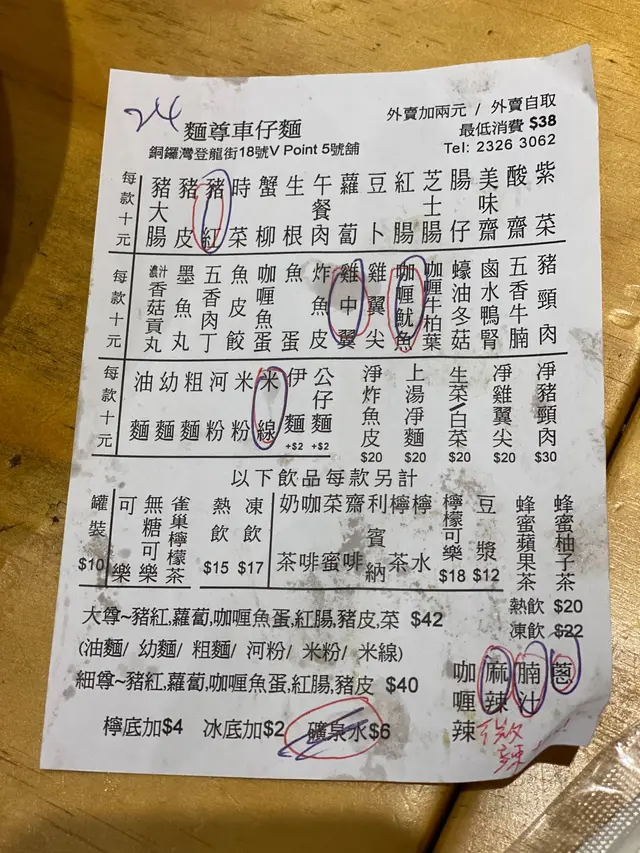 24
麵尊車仔麵
銅鑼灣登龍街18號V Point 5號舖
外賣加兩元 / 外賣自取
最低消費 $38
Tel: 2326 3062
每款十元
豬大腸
豬皮
豬紅
時菜
蟹柳
生根
午餐肉
蘿蔔
豆卜
紅腸
芝士腸
腸仔
美味齋
酸齋
紫菜
每款十元
濃汁香菇貢丸
墨魚丸
五香肉丁
魚皮餃
咖喱魚蛋
魚蛋
炸魚皮
雞中翼
雞翼尖
咖喱魷魚
咖喱牛柏葉
蠔油冬菇
鹵水鴨腎
五香牛腩
豬頸肉
每款十元
油麵
幼麵
粗麵
河粉
米粉
米線
伊麵 +$2
公仔麵 +$2
淨炸魚皮 $20
上湯淨麵 $20
生菜/白菜 $20
淨雞翼尖 $20
淨豬頸肉 $30
以下飲品每款另計
罐裝 $10
可樂
無糖可樂
雀巢檸檬茶
熱飲 $15
凍飲 $17
奶茶
咖啡
菜蜜
齋啡
利賓納
檸茶
檸水
檸檬可樂 $18
豆漿 $12
蜂蜜蘋果茶
蜂蜜柚子茶
熱飲 $20
凍飲 $22
大尊~豬紅,蘿蔔,咖喱魚蛋,紅腸,豬皮,菜 $42
(油麵/ 幼麵/ 粗麵/ 河粉/ 米粉/ 米線)
細尊~豬紅,蘿蔔,咖喱魚蛋,紅腸,豬皮 $40
檸底加$4 冰底加$2 礦泉水$6
咖喱辣
麻辣
腩汁
蔥
微辣